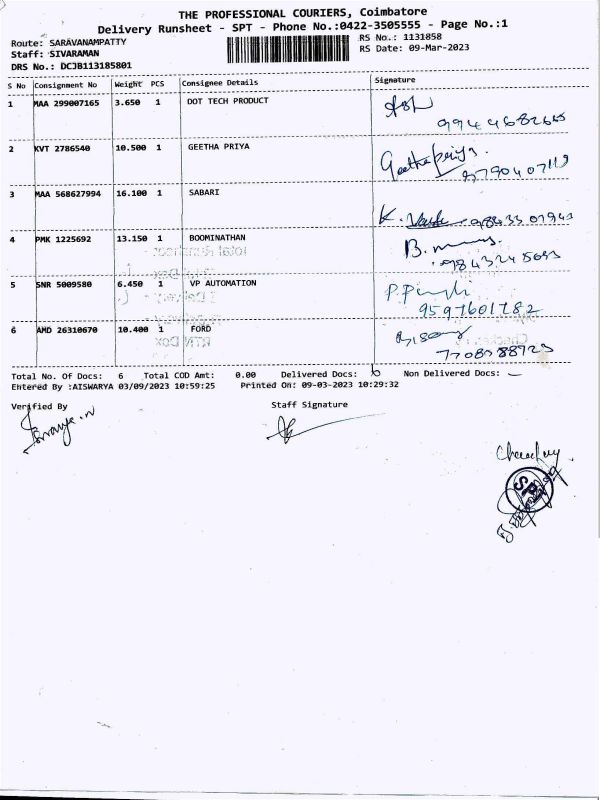 THE PROFESSIONAL COURIERS, Coimbatore
Delivery Runsheet - SPT - Phone No.:0422-3505555 - Page No.:1
Route: SARAVANAMPATTY
RS No.: 1131858
Staff: SIVARAMAN
RS Date: 09-Mar-2023
DRS No.: DCJB113185801
S No Consignment No Weight PCS Consignee Details Signature
1 MAA 299007165 3.650 1 DOT TECH PRODUCT
2 KVT 2786540 10.500 1 GEETHA PRIYA Geethapriya.
8790407119
3 MAA 568627994 16.100 1 SABARI
4 PMK 1225692 13.150 1 BOOMINATHAN
5 SNR 5009580 6.450 1 VP AUTOMATION
9597601782
6 AMD 26310670 10.400 1 FORD
Total No. Of Docs: 6 Total COD Amt: 0.00 Delivered Docs: Non Delivered Docs: —
Entered By :AISWARYA 03/09/2023 10:59:25 Printed On: 09-03-2023 10:29:32
Verified By Staff Signature
SPT